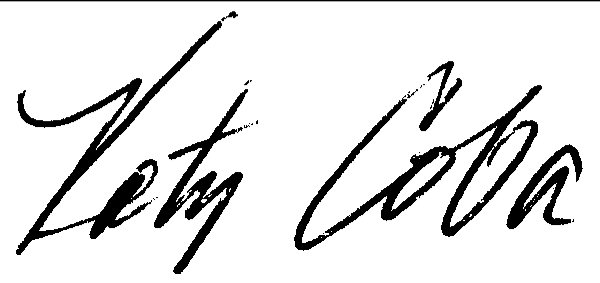 Katy Coba